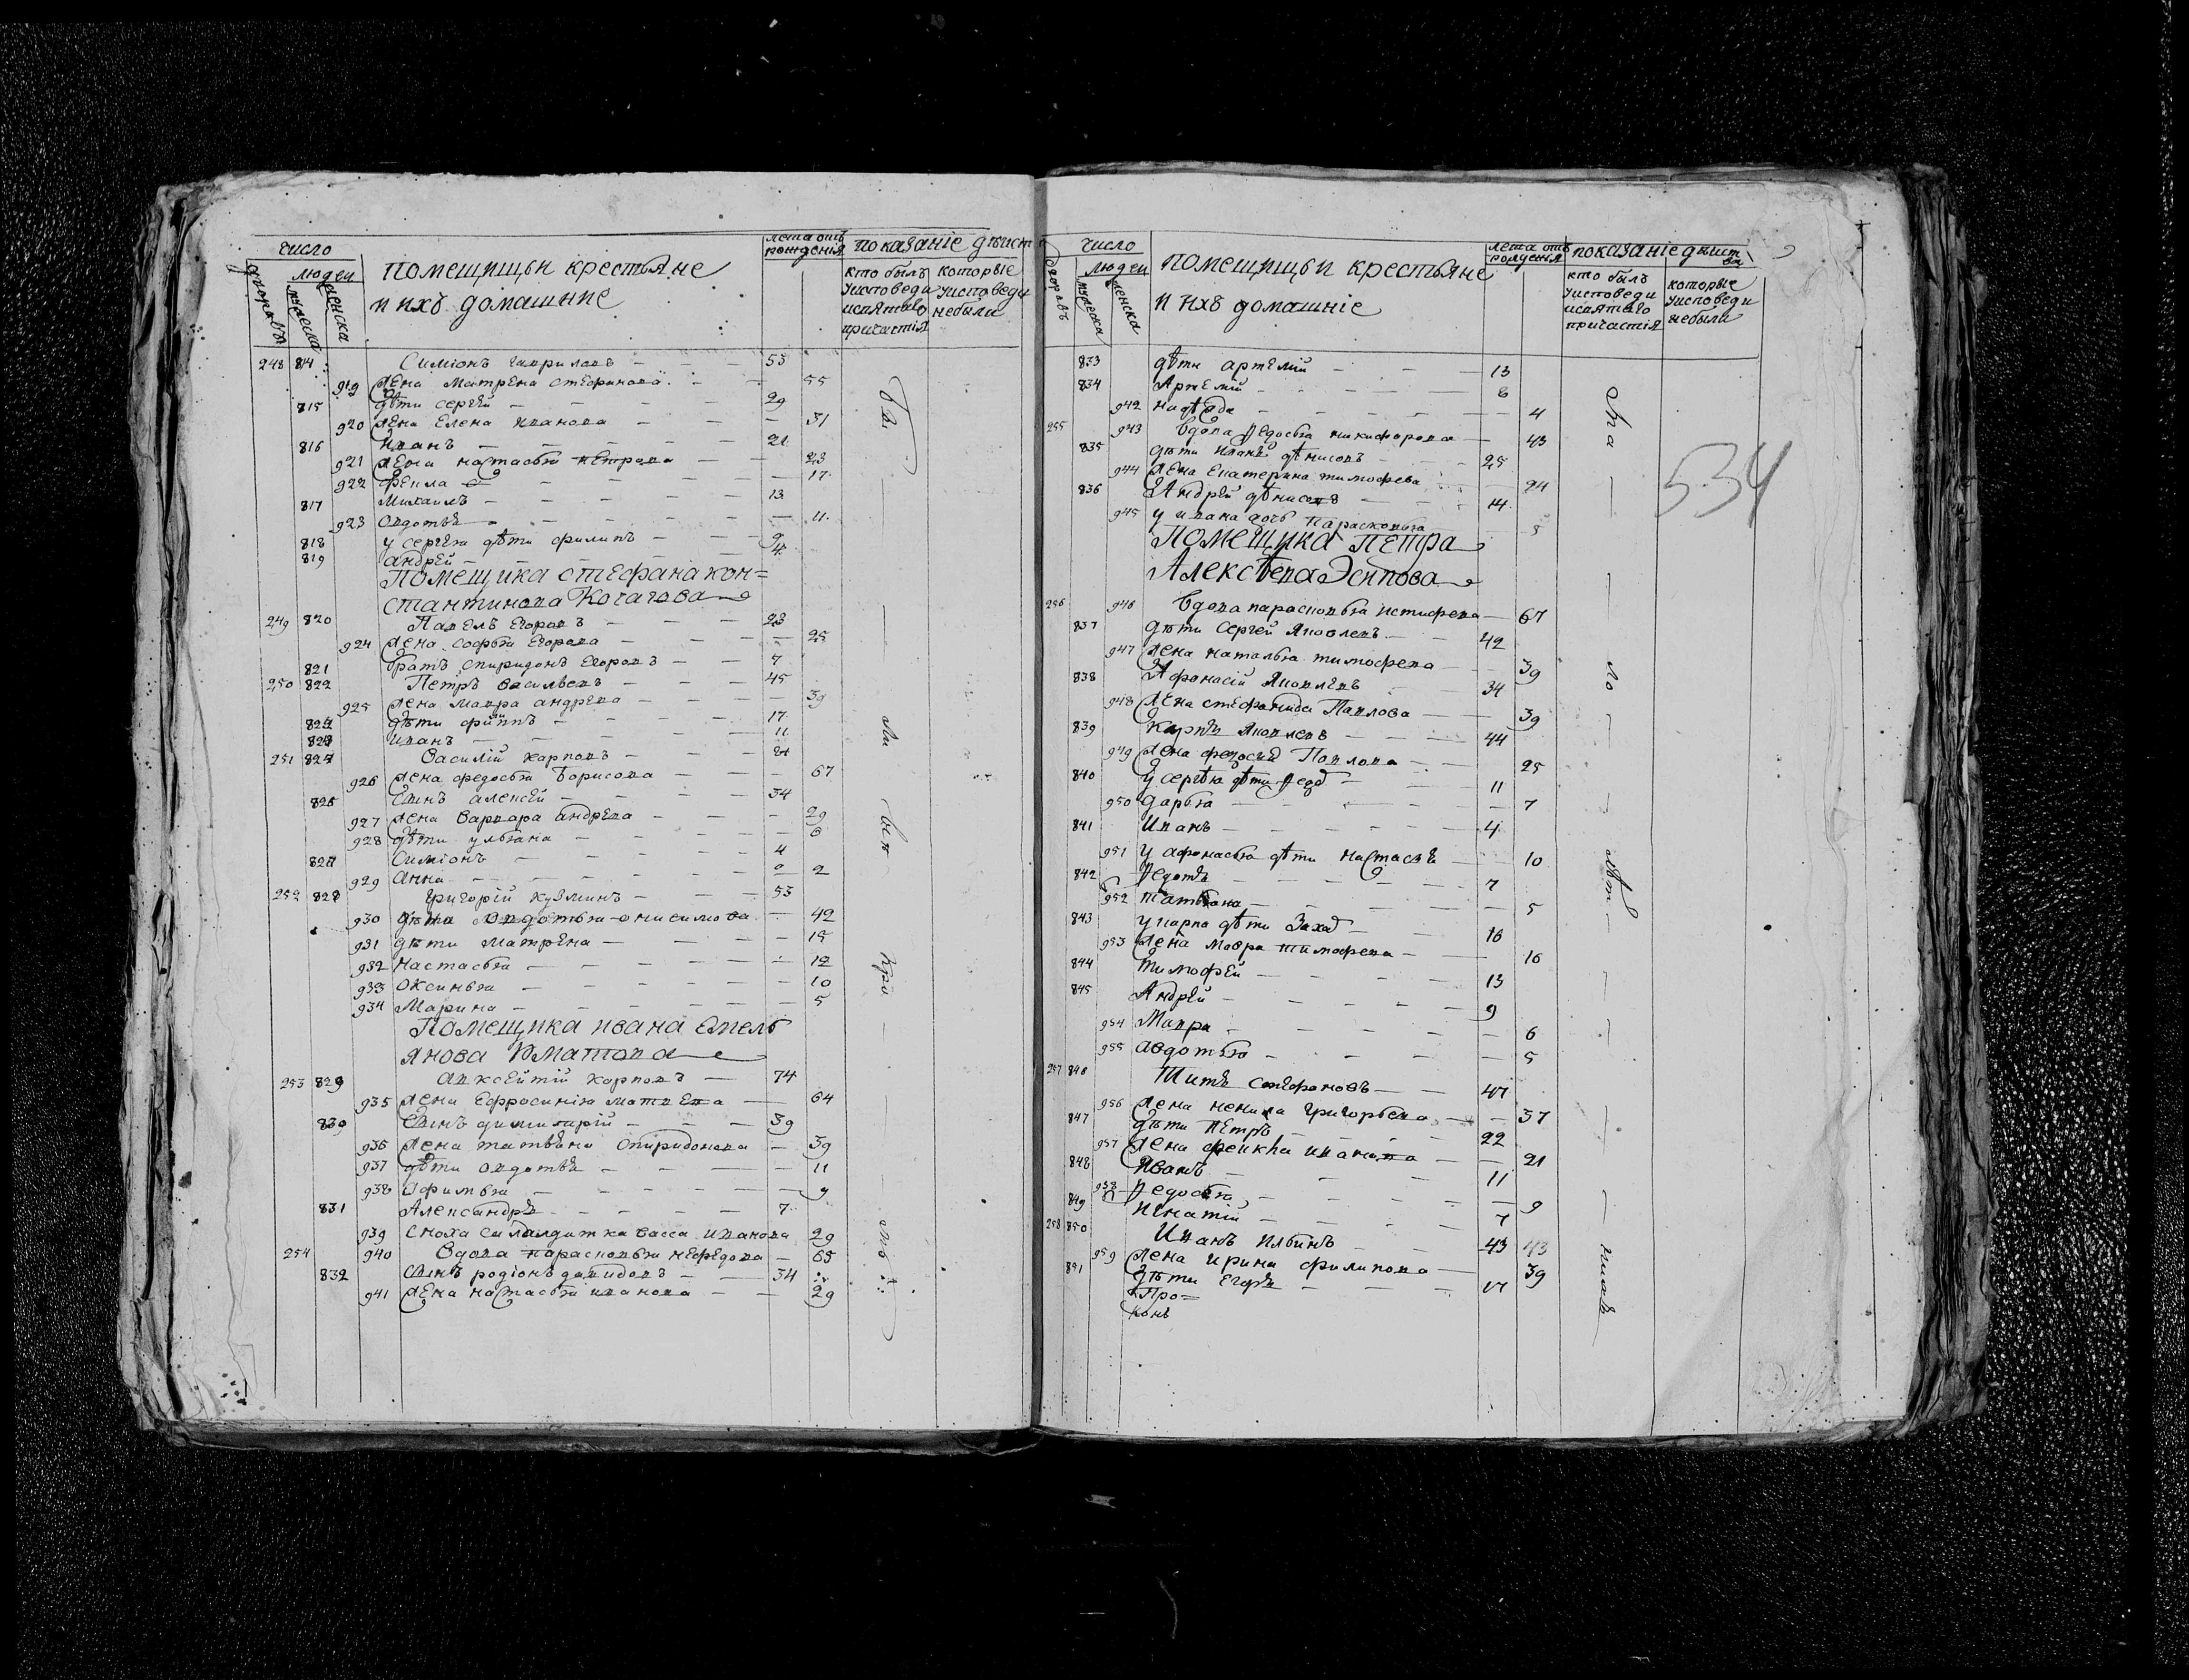 число
людей
дворовъ
мужеска
женска
помещицьи крестьяне
и ихъ домашние
лета отъ
рождения
показаніе дѣист
кто былъ
уисповеди
исвятаго
причастія
которые
уисповеди
небыли
248 814 Симіонъ Гавриловъ — 53
919 Жена Матрена стефанова — 55
815 дѣти сергѣй — 29
920 жена Елена иванова — 31
816 Иванъ — 21
921 жена настасья петрова — 23
922 фекла — 17
817 Михаилъ — 13
923 овдотья — 11
818 у сергѣя дѣти филипъ — 9
819 андрѣй — 4
Помещика стефана кон=
стантинова Кочагова
249 820 Павелъ Егоровъ — 23
924 жена софья Егорова — 25
821 братъ спиридонъ Егоровъ — 7
250 822 Петръ васильевъ — 45
925 жена мавра андрѣева — 39
822 дѣти — 17
823 иванъ — 11
251 824 Василій карповъ — 84
926 жена федосья борисова — 67
825 сынъ алексѣй — 34
927 жена варвара андрѣева — 29
928 дѣти ульяна — 6
827 Симіонъ — 4
929 анна — 2
252 828 Григорій кузминъ — 53
930 жена овдотья онисимова — 42
931 дѣти матрѣна — 15
932 настасья — 12
933 оксинья — 10
934 Марина — 5
Помещика ивана Емель
янова
253 829 карповъ — 74
935 жена Ефросинія матвѣева — 64
830 сынъ — 39
936 жена татьяна спиридонова — 39
937 дѣти овдотья — 11
938 офимья — 9
831 Александръ — 7
939 сноха салдатка васса иванова 29
254 940 вдова парасковья нефедова — 65
832 сынъ родіонъ давидовъ — 34
941 жена настасья иванова — 29
число
людей
дворовъ
мужеска
женска
помещицьи крестьяне
и ихъ домашніе
лета отъ
рожденія
показаніе дѣист
ва
кто былъ
уисповеди
исвятаго
причастія
которые
уисповеди
небыли
534
833 дѣти артемій — 13
834 Артемій — 6
942 — 4
255 943 вдова федосья никифорова — 43
835 дѣти иванъ дѣнисовъ — 25
944 жена Екатерина тимофева — 24
836 Андрѣй дѣнисовъ — 14
945 у ивана дочь парасковья — 5
Помещика Петра
Алексѣева Эсипова
256 946 вдова парасковья — 67
837 дѣти Сергей яковлевъ — 42
947 жена наталья тимофева — 39
838 Афонасій яковлевъ — 34
948 жена стефанида Павлова — 39
839 Карпъ яковлевъ — 44
949 жена Павлова — 25
840 у сергѣя дѣти — 11
950 дарья — 7
841 Иванъ — 4
951 у афонасья дѣти настасья — 10
842 Федотъ — 7
952 татьяна — 5
843 у карпа дѣти Захаръ — 16
953 жена мавра тимофева — 16
844 тимофѣй — 13
845 Андрѣй — 9
954 Мавра — 6
955 авдотья — 5
257 846 Титъ стефановъ — 47
956 жена ненила григорьева — 37
847 дѣти петръ — 22
957 жена иванова — 21
848 иванъ — 11
958 федосья — 9
849 игнатій — 7
258 850 Иванъ ильинъ — 43 43
959 жена ирина филипова — 39
851 дѣти Егоръ — 17
Про=
конъ